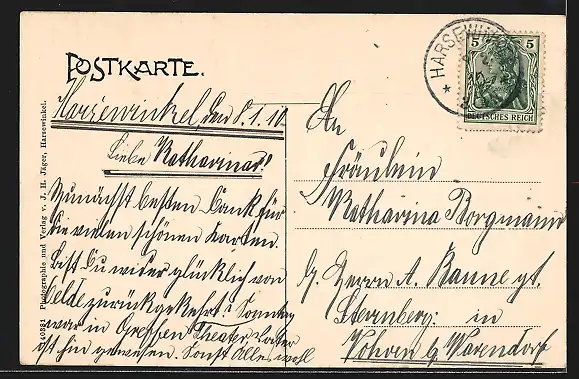 POSTKARTE.
Harsewinkel, den 8.1.10
Liebe Katharina!
Zunächst besten Dank für
die vielen schönen Karten.
Bist Du wider glücklich von
zurückgekehrt? Sonntag
war in Greffen Theater,
ist hin gewesen. Sonst Alles wohl
Photographie und Verlag v. J. H. Jäger, Harsewinkel.
HARSEWINKEL
5 5
DEUTSCHES REICH
An
Fräulein
Katharina Borgmann
b/ Herrn A. Banne gt.
Sternberg: in
Vohren b/ Warendorf